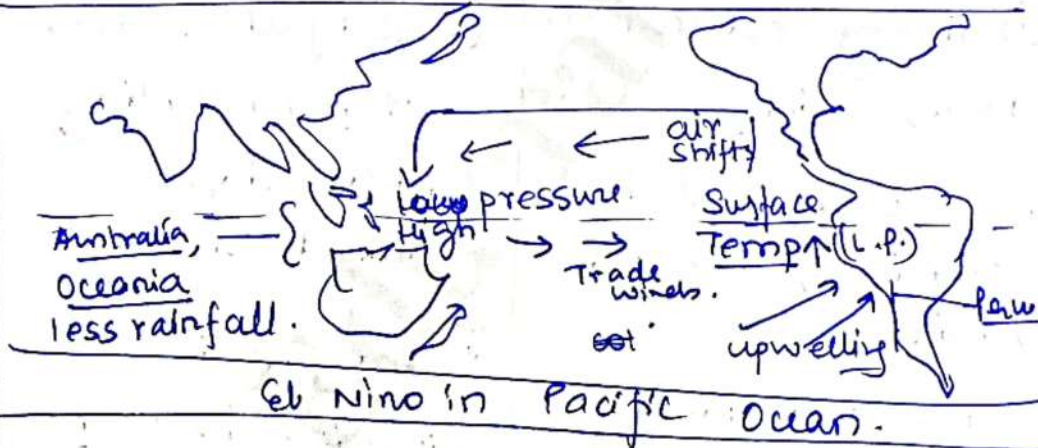 air
shifts
Low pressure
High
Surface
Temp↑ (L.P.)
Australia,
Oceania
less rainfall.
Trade
winds.
upwelling
Peru
El Nino in Pacific Ocean.